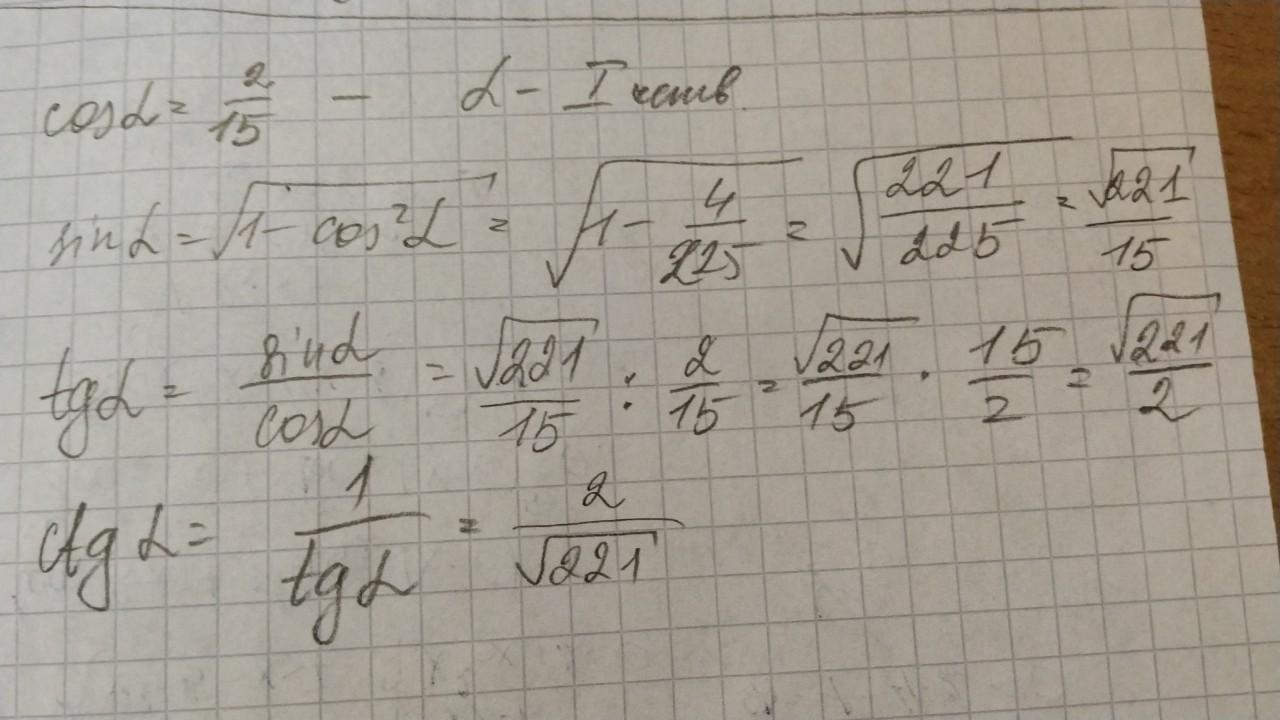 cosα = 2/15 — α - I четв.
sinα = √(1 - cos²α) = √(1 - 4/225) = √(221/225) = √221/15
tgα = sinα/cosα = √221/15 : 2/15 = √221/15 · 15/2 = √221/2
ctgα = 1/tgα = 2/√221